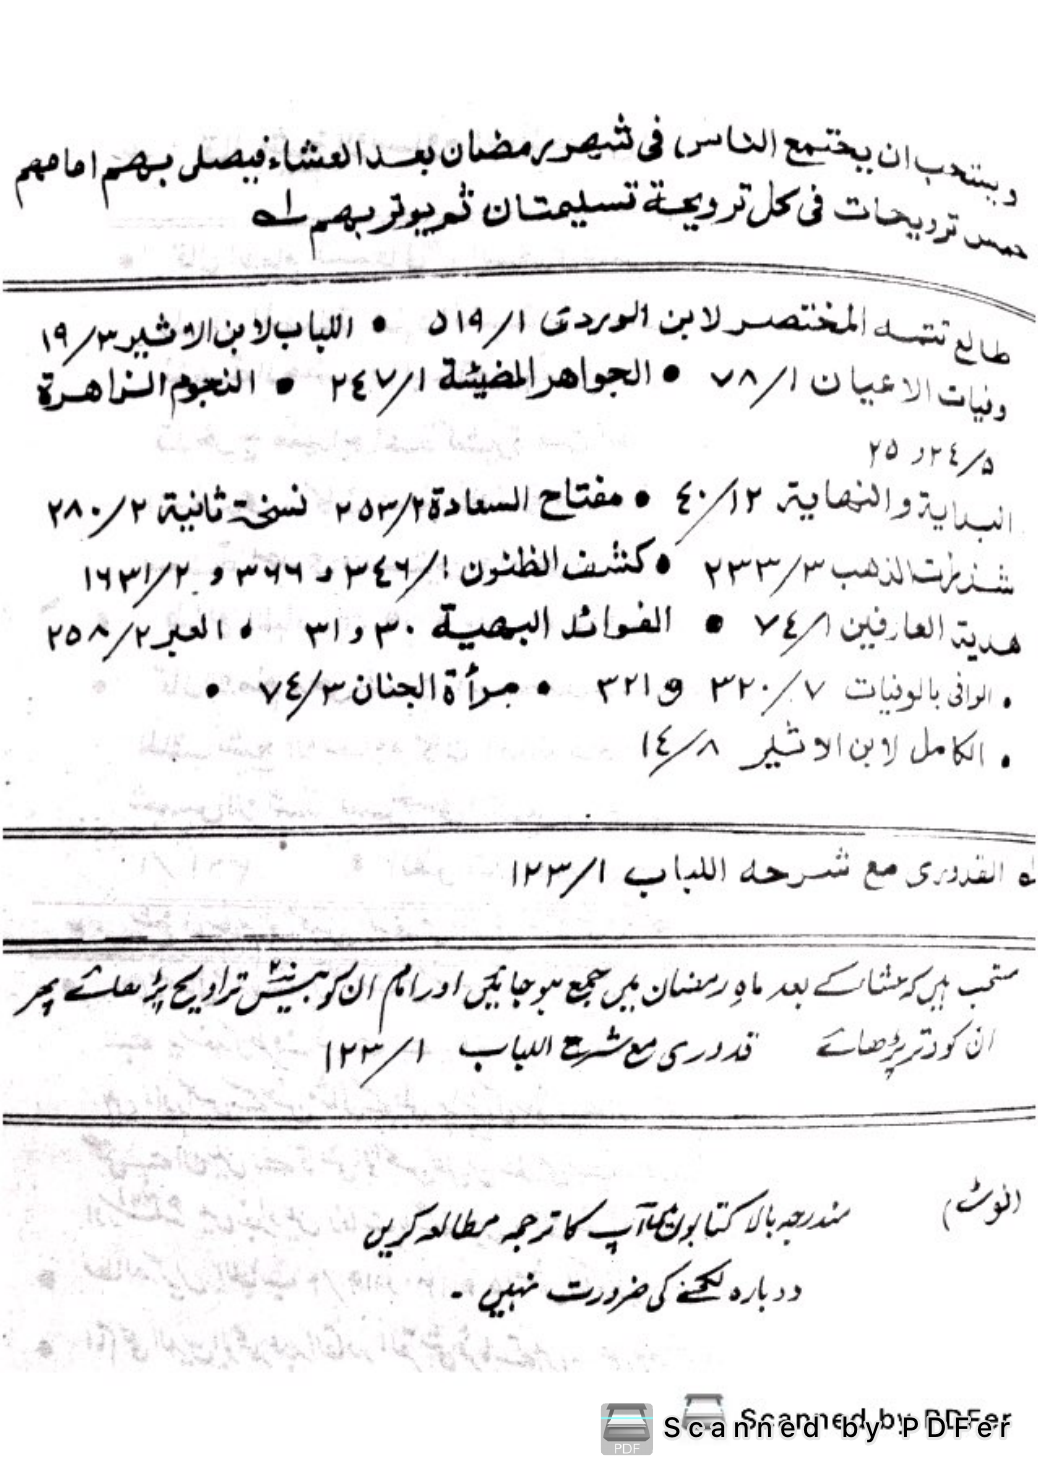 ويستحب ان يجتمع الناس فى شهر رمضان بعد العشاء فيصلى بهم امامهم
خمس ترويحات فى كل ترويحة تسليمتان ثم يوتر بهم له
طالع تتمه المختصر لابن الوردى ١/٥١٩ • اللباب لابن الاثير ٣/١٩
وفيات الاعيان ١/٧٨ • الجواهر المضيئة ١/٢٤٧ • النجوم الزاهرة
٥/٢٤ و ٢٥
البداية والنهاية ١٢/٤٠ • مفتاح السعادة ٢/٢٥٣ نسخة ثانية ٢/٢٨٠
شذرات الذهب ٣/٢٣٣ • كشف الظنون ١/٣٤٦ و ٣٦٦ و ٢/١٦٣١
هدية العارفين ١/٧٤ • الفوائد البهية ٣٠ و ٣١ • العبر ٢/٢٥٨
• الوافى بالوفيات ٧/٣٢٠ و ٣٢١ • مرأة الجنان ٣/٧٤ •
• الكامل لابن الاثير ٨/١٤
له القدورى مع شرحه اللباب ١/١٢٣
مستحب ہیں کہ عشاء کے بعد ماہ رمضان میں جمع ہو جائیں اور امام ان کو بیس ٢٠ تراویح پڑھائے پھر
ان کو وتر پڑھائے قدوری مع شرح اللباب ١/١٢٣
(نوٹ) مندرجہ بالا کتابوں کا آپ کا ترجمہ مطالعہ کریں
دوبارہ لکھنے کی ضرورت نہیں ۔
Scanned by PDFer
Scanned by PDFer
PDF